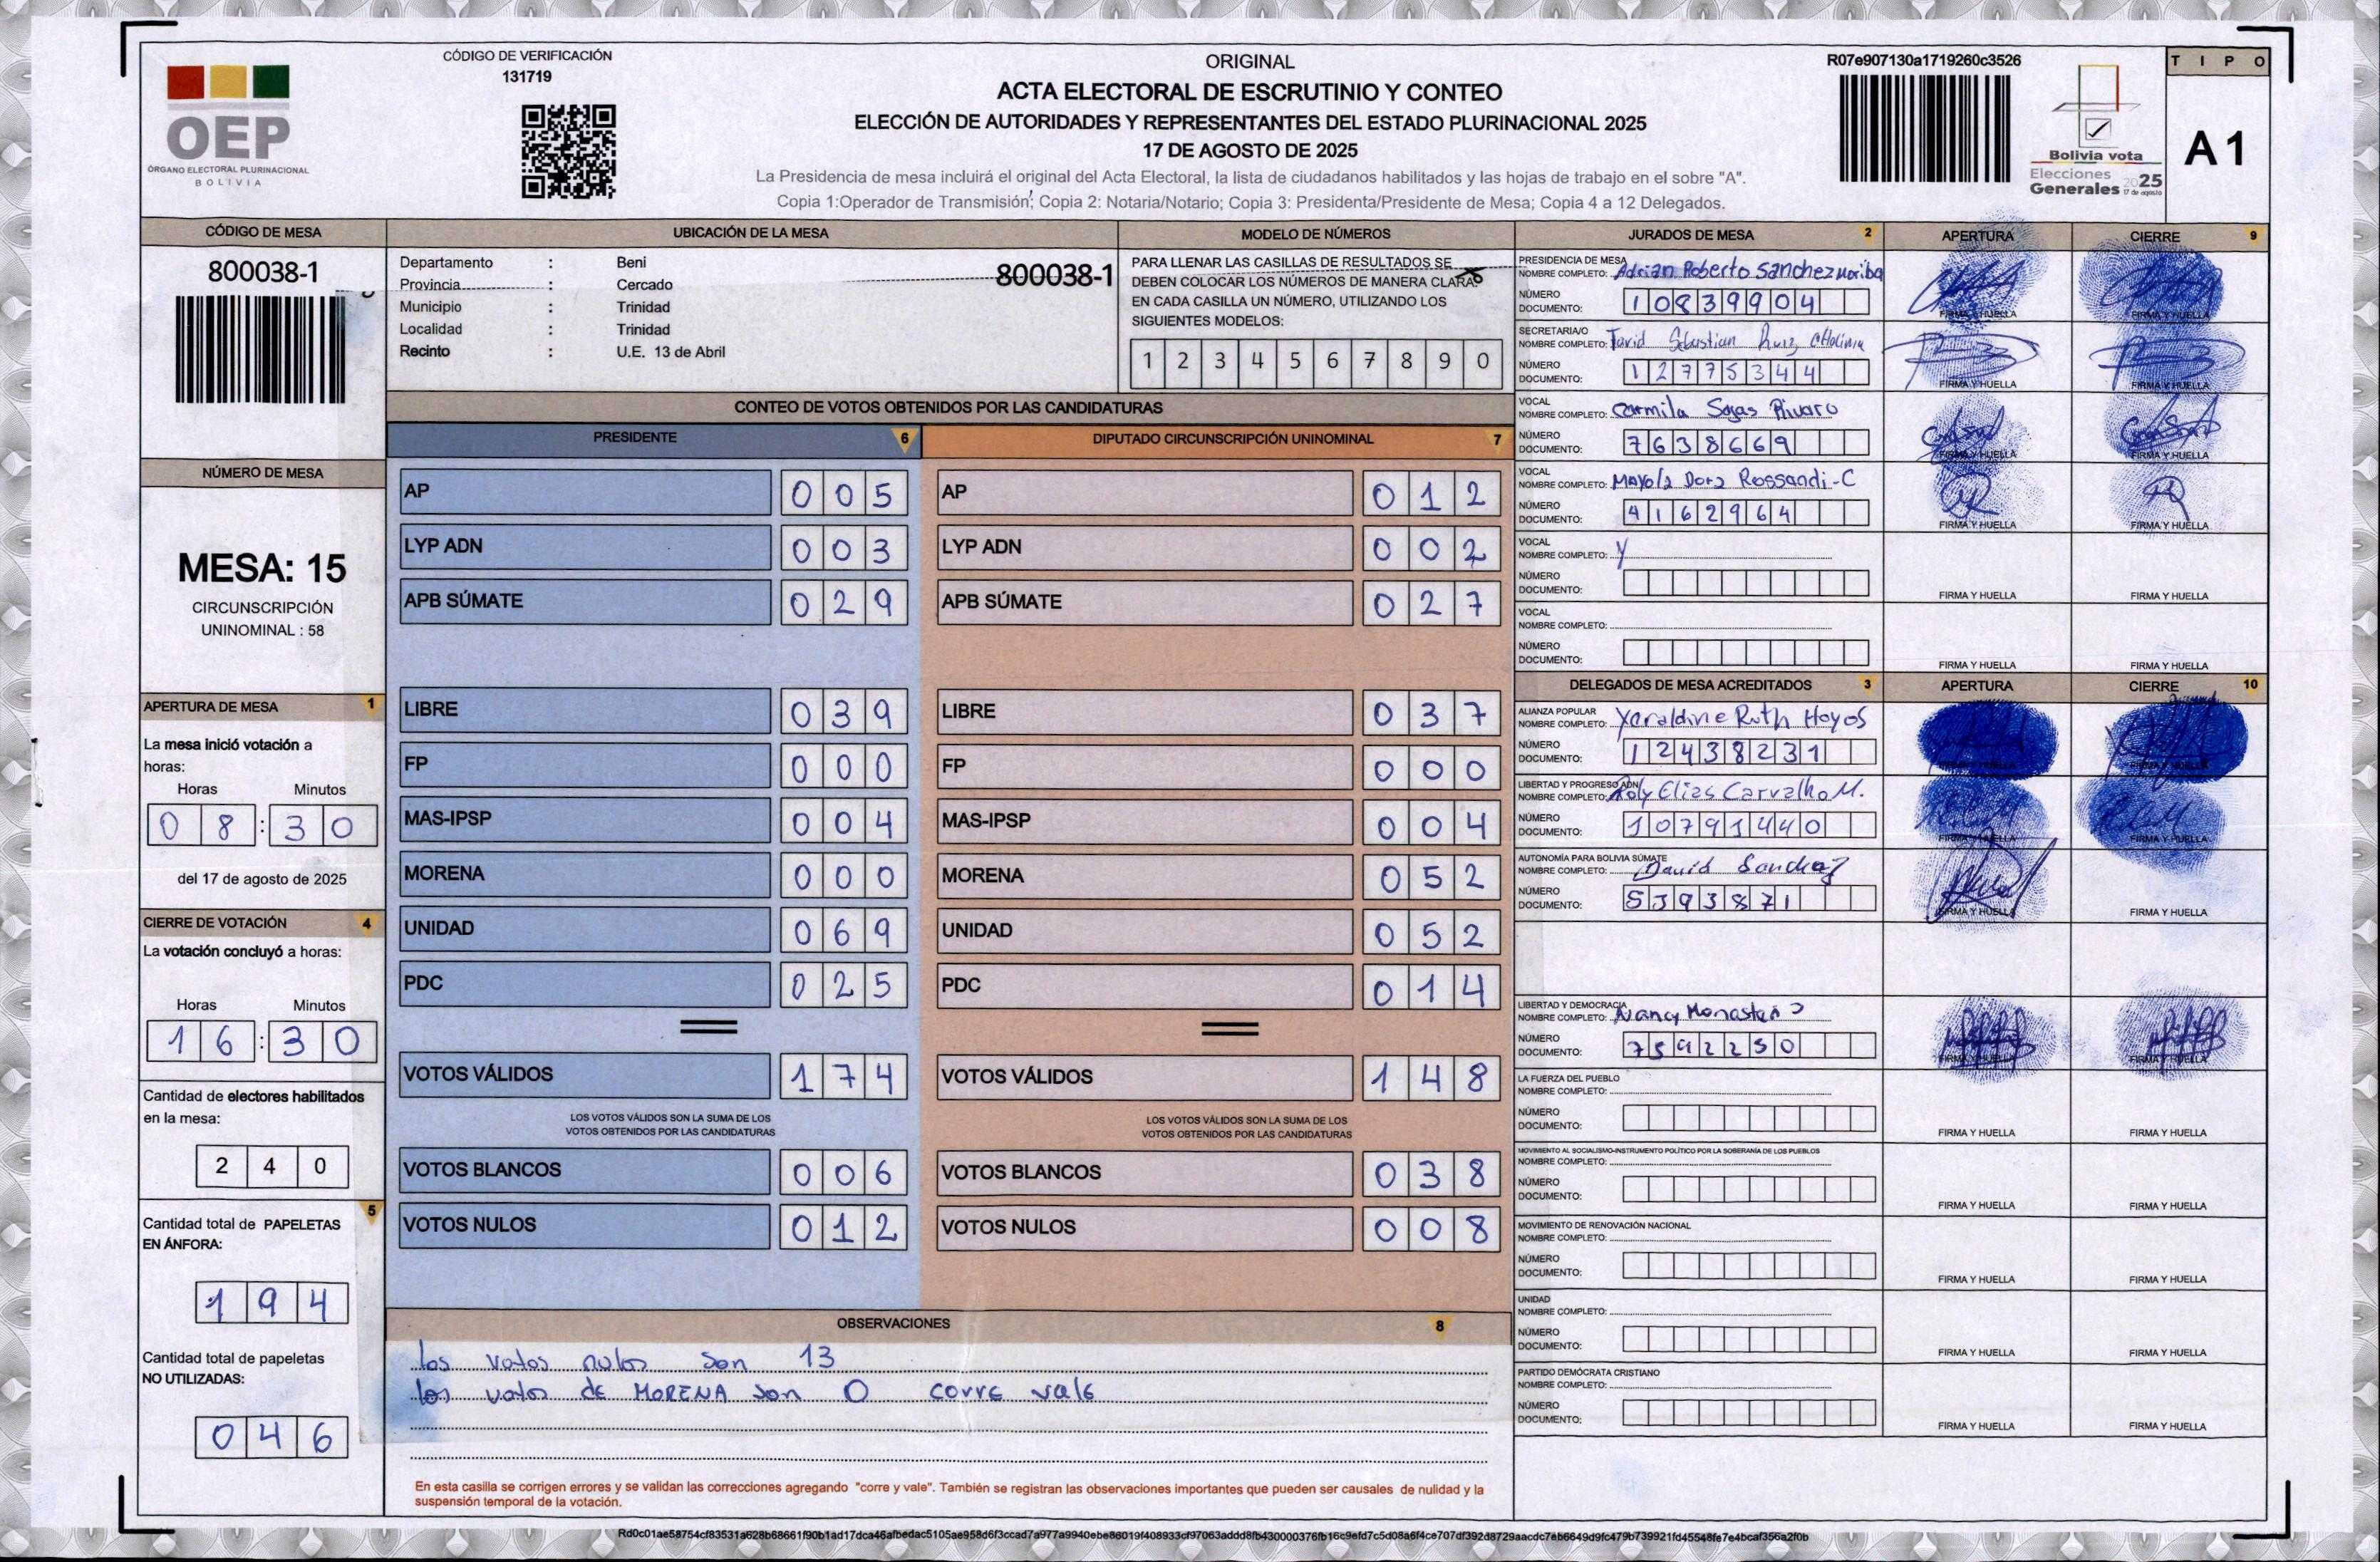 CÓDIGO DE VERIFICACIÓN
131719
OEP
ÓRGANO ELECTORAL PLURINACIONAL
BOLIVIA
ORIGINAL
ACTA ELECTORAL DE ESCRUTINIO Y CONTEO
ELECCIÓN DE AUTORIDADES Y REPRESENTANTES DEL ESTADO PLURINACIONAL 2025
17 DE AGOSTO DE 2025
La Presidencia de mesa incluirá el original del Acta Electoral, la lista de ciudadanos habilitados y las hojas de trabajo en el sobre "A".
Copia 1:Operador de Transmisión; Copia 2: Notaria/Notario; Copia 3: Presidenta/Presidente de Mesa; Copia 4 a 12 Delegados.
R07e907130a1719260c3526
Bolivia vota
Elecciones
Generales 2025
17 de agosto
TIPO
A1
CÓDIGO DE MESA
800038-1
UBICACIÓN DE LA MESA
Departamento : Beni
Provincia : Cercado
Municipio : Trinidad
Localidad : Trinidad
Recinto : U.E. 13 de Abril
800038-1
MODELO DE NÚMEROS
PARA LLENAR LAS CASILLAS DE RESULTADOS SE
DEBEN COLOCAR LOS NÚMEROS DE MANERA CLARA.
EN CADA CASILLA UN NÚMERO, UTILIZANDO LOS
SIGUIENTES MODELOS:
1 2 3 4 5 6 7 8 9 0
NÚMERO DE MESA
MESA: 15
CIRCUNSCRIPCIÓN
UNINOMINAL : 58
APERTURA DE MESA 1
La mesa inició votación a
horas:
Horas Minutos
08:30
del 17 de agosto de 2025
CIERRE DE VOTACIÓN 4
La votación concluyó a horas:
Horas Minutos
16:30
Cantidad de electores habilitados
en la mesa:
240
5
Cantidad total de PAPELETAS
EN ÁNFORA:
194
Cantidad total de papeletas
NO UTILIZADAS:
046
CONTEO DE VOTOS OBTENIDOS POR LAS CANDIDATURAS
PRESIDENTE 6
AP 005
LYP ADN 003
APB SÚMATE 029
LIBRE 039
FP 000
MAS-IPSP 004
MORENA 000
UNIDAD 069
PDC 025
VOTOS VÁLIDOS 174
LOS VOTOS VÁLIDOS SON LA SUMA DE LOS
VOTOS OBTENIDOS POR LAS CANDIDATURAS
VOTOS BLANCOS 006
VOTOS NULOS 012
DIPUTADO CIRCUNSCRIPCIÓN UNINOMINAL 7
AP 012
LYP ADN 002
APB SÚMATE 027
LIBRE 037
FP 000
MAS-IPSP 004
MORENA 052
UNIDAD 052
PDC 014
VOTOS VÁLIDOS 148
LOS VOTOS VÁLIDOS SON LA SUMA DE LOS
VOTOS OBTENIDOS POR LAS CANDIDATURAS
VOTOS BLANCOS 038
VOTOS NULOS 008
OBSERVACIONES 8
los votos nulos son 13
los votos de MORENA son 0 corre vale
En esta casilla se corrigen errores y se validan las correcciones agregando "corre y vale". También se registran las observaciones importantes que pueden ser causales de nulidad y la
suspensión temporal de la votación.
JURADOS DE MESA 2 APERTURA CIERRE 9
PRESIDENCIA DE MESA
NOMBRE COMPLETO: Adrian Roberto Sanchez Moriba
NÚMERO
DOCUMENTO: 10839904
FIRMA Y HUELLA FIRMA Y HUELLA
SECRETARIA/O
NOMBRE COMPLETO: Sebastian Ruiz
NÚMERO
DOCUMENTO: 12775344
FIRMA Y HUELLA FIRMA Y HUELLA
VOCAL
NOMBRE COMPLETO: Carmila Sojas Rivaro
NÚMERO
DOCUMENTO: 7638669
FIRMA Y HUELLA FIRMA Y HUELLA
VOCAL
NOMBRE COMPLETO: Mayola Dora Rossandi-C
NÚMERO
DOCUMENTO: 4162964
FIRMA Y HUELLA FIRMA Y HUELLA
VOCAL
NOMBRE COMPLETO:
NÚMERO
DOCUMENTO:
FIRMA Y HUELLA FIRMA Y HUELLA
VOCAL
NOMBRE COMPLETO:
NÚMERO
DOCUMENTO:
FIRMA Y HUELLA FIRMA Y HUELLA
DELEGADOS DE MESA ACREDITADOS 3 APERTURA CIERRE 10
ALIANZA POPULAR
NOMBRE COMPLETO: Yeraldine Ruth Hoyos
NÚMERO
DOCUMENTO: 12438231
FIRMA Y HUELLA FIRMA Y HUELLA
LIBERTAD Y PROGRESO ADN
NOMBRE COMPLETO: Roly Elias Carvalho M.
NÚMERO
DOCUMENTO: 10791440
FIRMA Y HUELLA FIRMA Y HUELLA
AUTONOMÍA PARA BOLIVIA SÚMATE
NOMBRE COMPLETO: David Sanchez
NÚMERO
DOCUMENTO: 5393871
FIRMA Y HUELLA FIRMA Y HUELLA
LIBERTAD Y DEMOCRACIA
NOMBRE COMPLETO: Nancy
NÚMERO
DOCUMENTO: 7592250
FIRMA Y HUELLA FIRMA Y HUELLA
LA FUERZA DEL PUEBLO
NOMBRE COMPLETO:
NÚMERO
DOCUMENTO:
FIRMA Y HUELLA FIRMA Y HUELLA
MOVIMIENTO AL SOCIALISMO-INSTRUMENTO POLÍTICO POR LA SOBERANÍA DE LOS PUEBLOS
NOMBRE COMPLETO:
NÚMERO
DOCUMENTO:
FIRMA Y HUELLA FIRMA Y HUELLA
MOVIMIENTO DE RENOVACIÓN NACIONAL
NOMBRE COMPLETO:
NÚMERO
DOCUMENTO:
FIRMA Y HUELLA FIRMA Y HUELLA
UNIDAD
NOMBRE COMPLETO:
NÚMERO
DOCUMENTO:
FIRMA Y HUELLA FIRMA Y HUELLA
PARTIDO DEMÓCRATA CRISTIANO
NOMBRE COMPLETO:
NÚMERO
DOCUMENTO:
FIRMA Y HUELLA FIRMA Y HUELLA